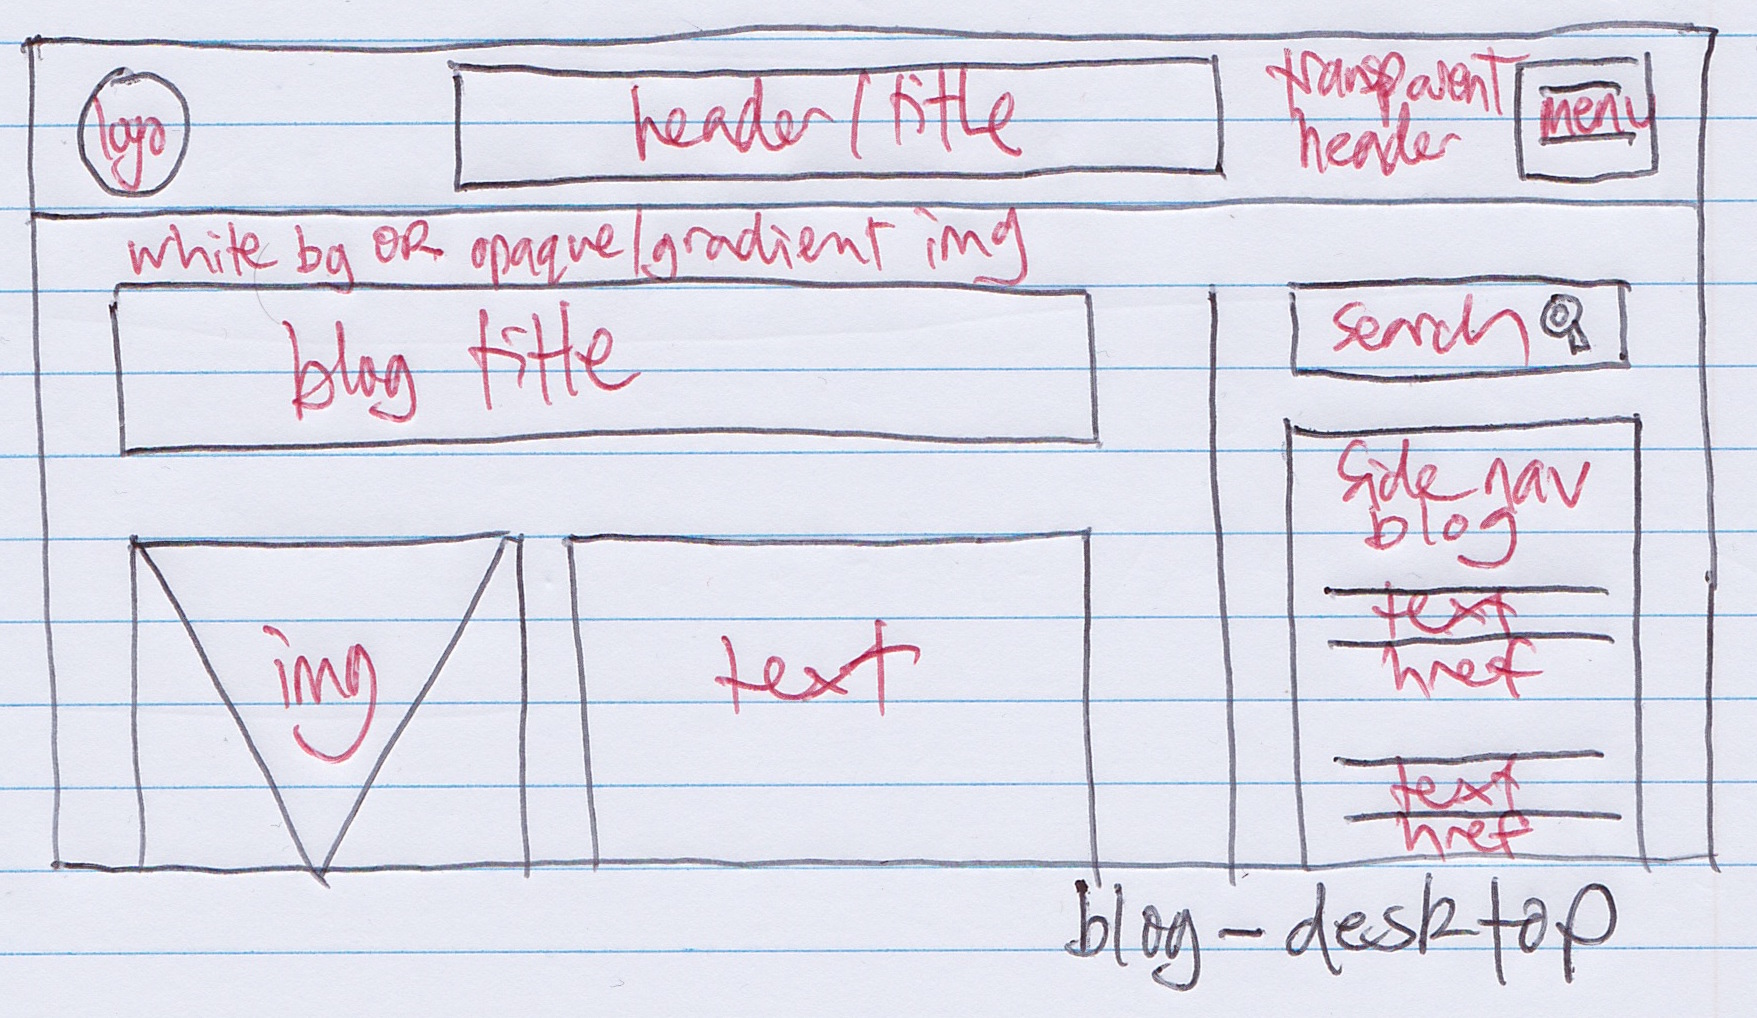 logo
header/title
transparent
header
menu
white bg OR opaque/gradient img
blog title
search
side nav
blog
img
text
text
href
text
href
blog - desktop